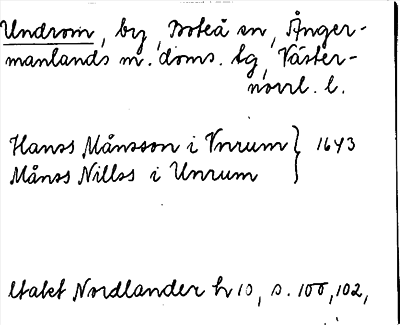 Undrom, by, Boteå sn, Ånger-
manlands m. doms. tg, Väster-
norrl. l.
Hanss Månsson i Vnrum } 1643
Månss Nillss i Unrum
Utakt Nordlander hr 10, s. 100, 102,